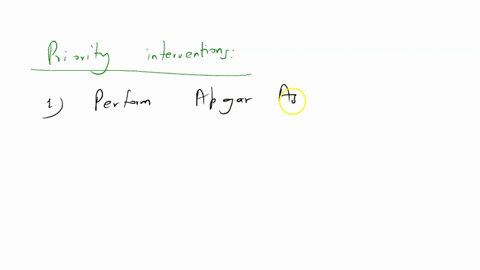 Priority interventions:
1) Perform Apgar As